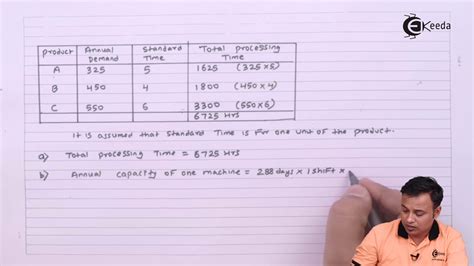 Ekeeda
Product Annual Demand Standard Time Total processing Time
A 325 5 1625 (325x5)
B 450 4 1800 (450x4)
C 550 6 3300 (550x6)
6725 Hrs
It is assumed that standard Time is for one unit of the product.
a) Total processing Time = 6725 Hrs
b) Annual capacity of one machine = 288 days x 1 shift x